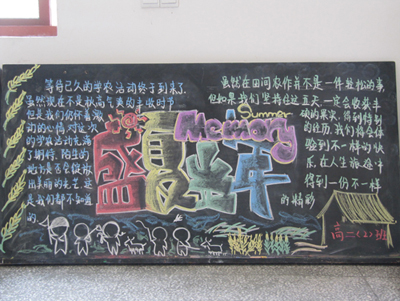 等待已久的学农活动终于到来了.
虽然现在不是秋高气爽的丰收时节
但是我们怀着激
动的心情对这次
的学农活动充满
了期待.陌生的
地方是否会绽放
出美丽的光芒.这
是我们都不知道
的.
Summer
Memory
盛夏
虽然在田间农作并不是一件轻松的事
但如果我们坚持住这五天.一定会收获丰
硕的果实.得到特别
的经历.我们将会体
验到不一样的快
乐.在人生旅途中
得到一份不一样
的精彩
高二(2)班